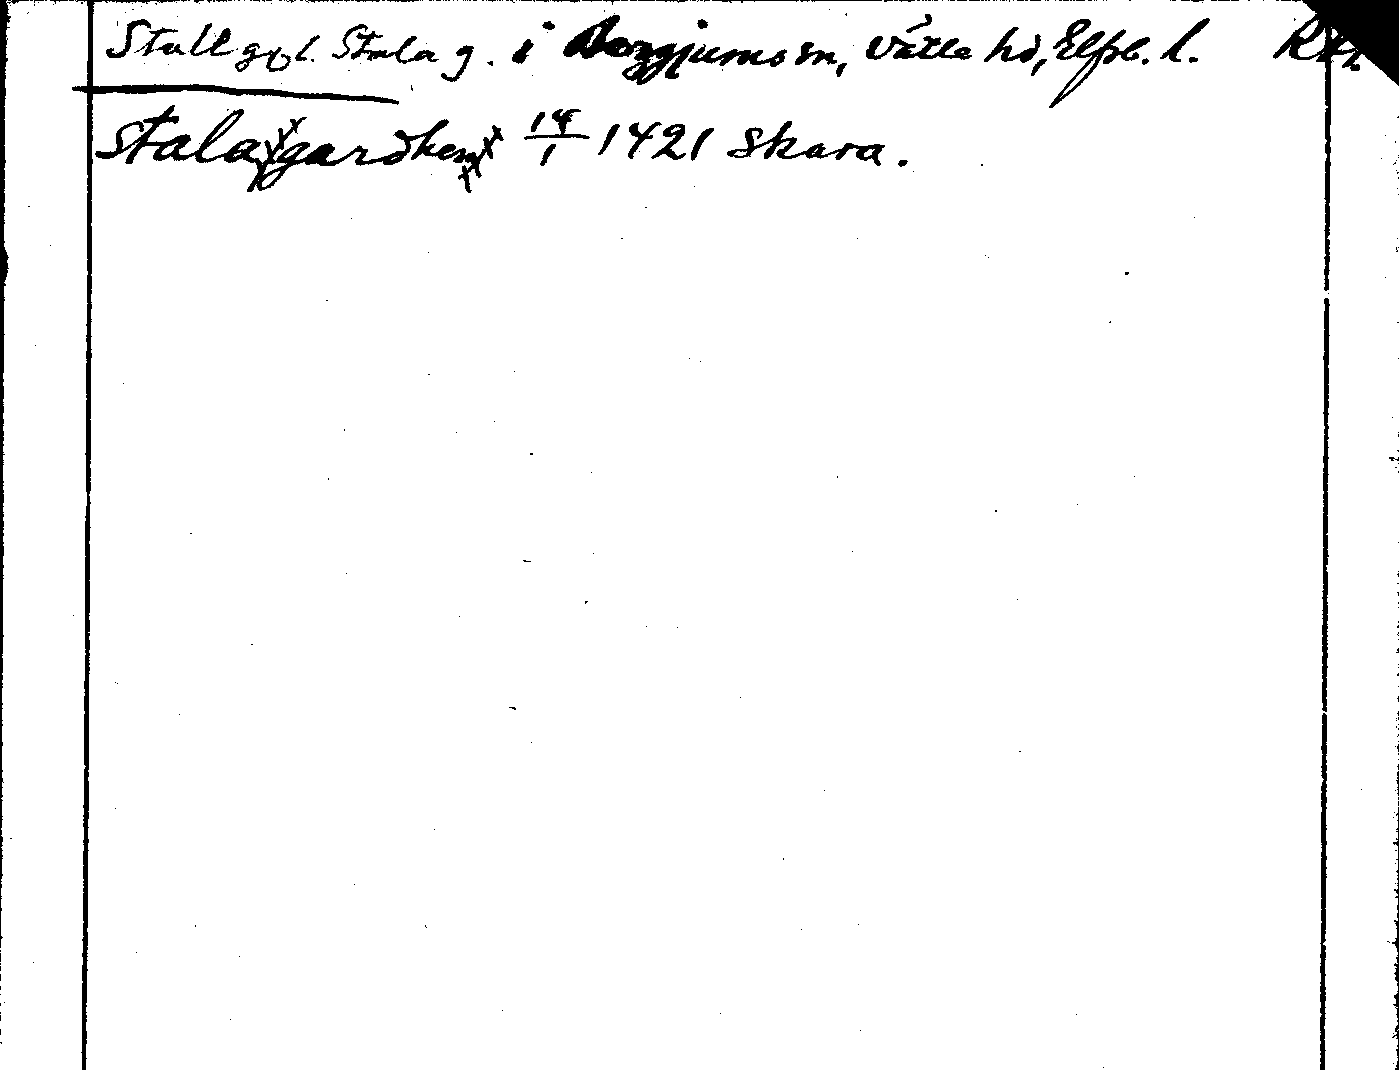 Stall g. l. Stala g. i Bergjums sn, Vätle hd, Elfsb. l.
Stala gardhen 14/1 1421 Skara.